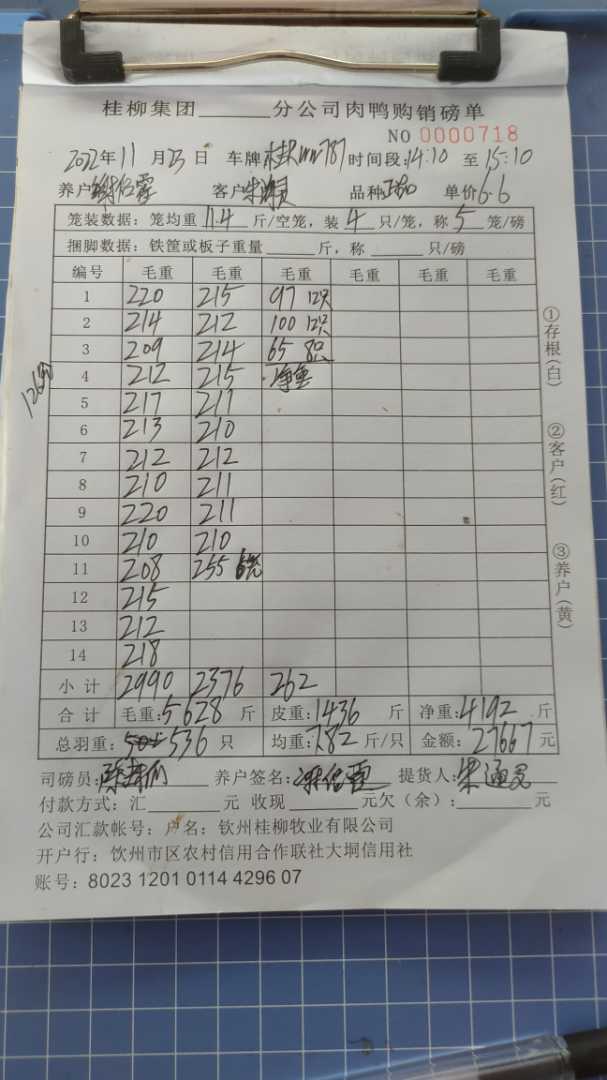 桂柳集团______分公司肉鸭购销磅单
NO 0000718
2022年11月23日 车牌 时间段:14:10 至 15:10
养户 客户 品种 单价6.6
笼装数据：笼均重11.4斤/空笼，装4只/笼，称5笼/磅
捆脚数据：铁筐或板子重量______斤，称______只/磅
编号 毛重 毛重 毛重 毛重 毛重 毛重
1 220 215 97 12只
2 214 212 100 12只
3 209 214 65 8只
4 212 215 净重
5 217 217
6 213 210
7 212 212
8 210 211
9 220 211
10 210 210
11 208 255
12 215
13 212
14 218
小计 2990 2376 262
合计 毛重:5628斤 皮重:1436斤 净重:4192斤
总羽重: 536只 均重:7.82斤/只 金额:27667元
司磅员: 养户签名: 提货人:
付款方式：汇______元 收现______元欠（余）:______元
公司汇款帐号：户名：钦州桂柳牧业有限公司
开户行：饮州市区农村信用合作联社大垌信用社
账号：8023 1201 0114 4296 07
①存根（白）
②客户（红）
③养户（黄）